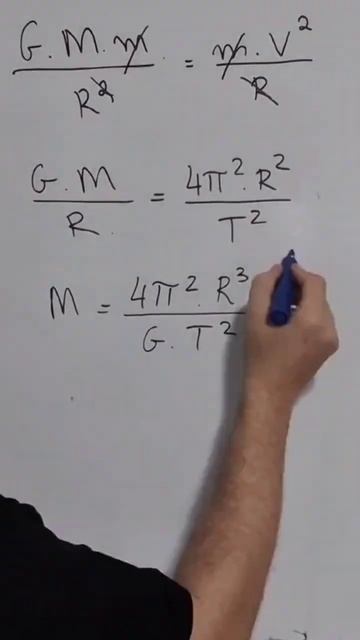 G.M.m/R² = m.V²/R
G.M/R = 4π².R²/T²
M = 4π².R³/G.T²